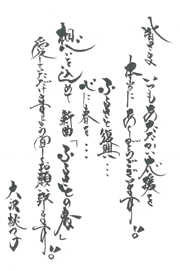 皆さま
いつもあたたかい応援を
本当にありがとうございます。
ふるさと復興…
心に春を…
想いを込めて 新曲「ふるさとの春」
愛していただけますよう宜しくお願い致します。
大沢桃子